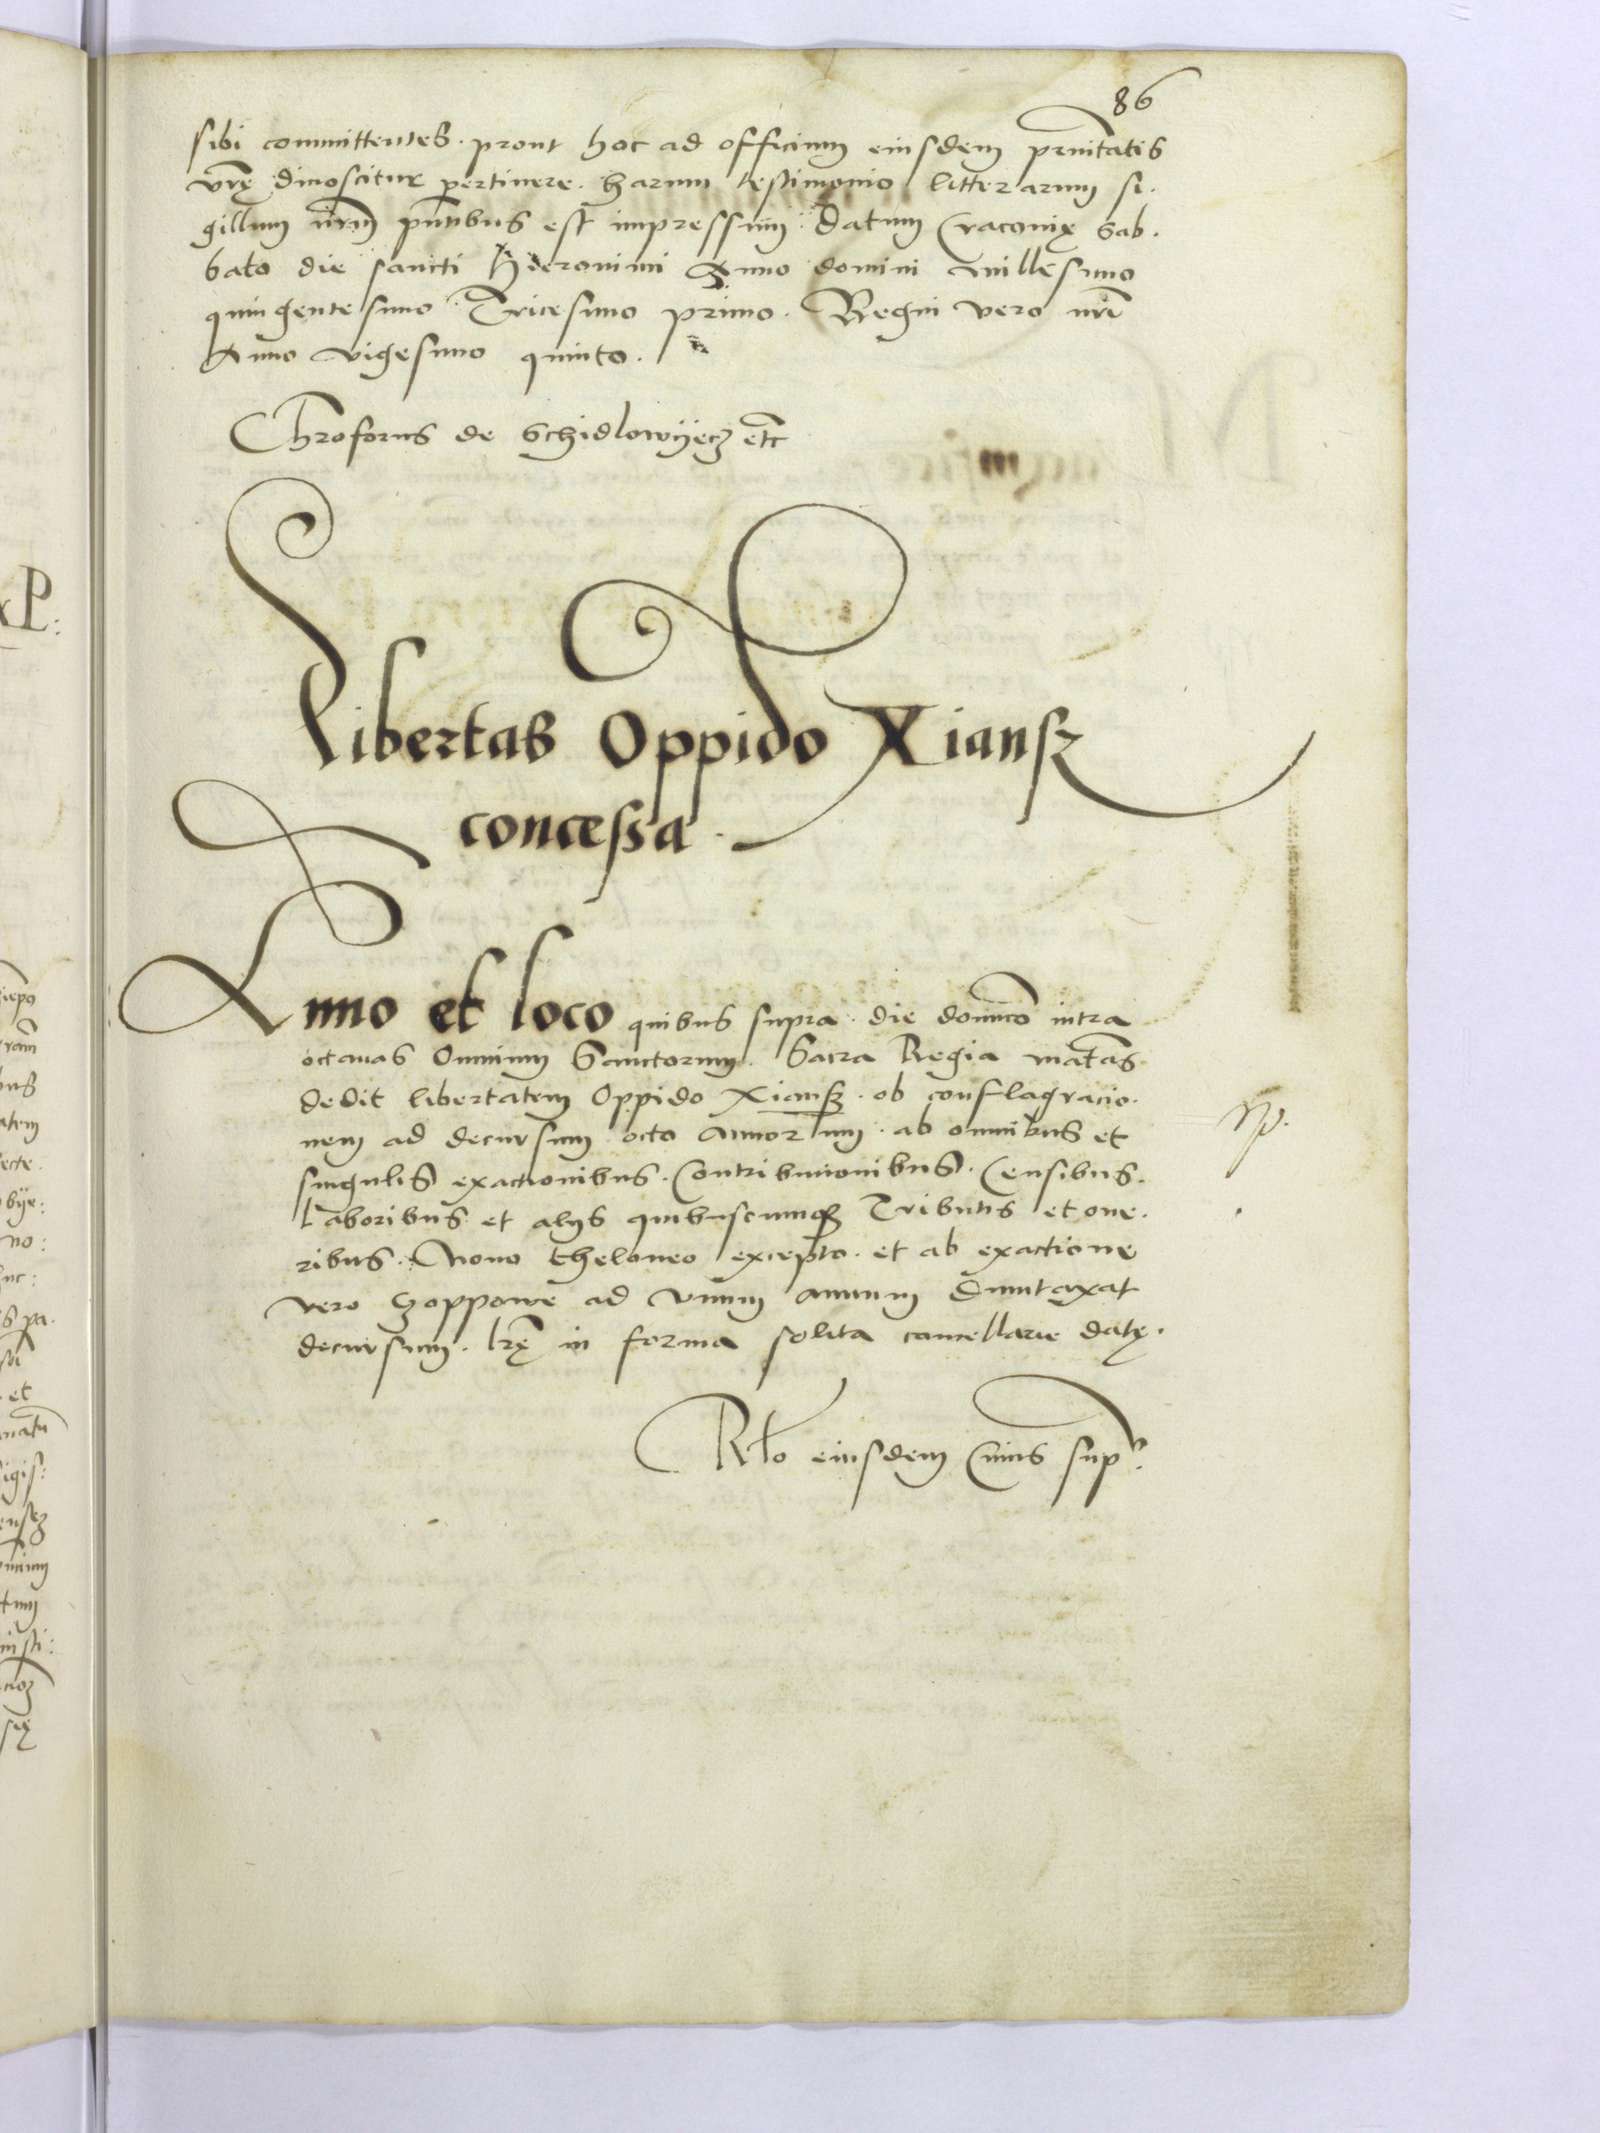 86
sibi committentes. prout hoc ad officium eiusdem prnitatis
vrę dinoscitur pertinere. harum testimonio litterarum si.
gillum nrm pntibus est impressum. Datum Cracovię Sab.
bato die sancti Hieronimi Anno domini millesimo
quingentesimo Tricesimo primo. Regni vero nri
Anno vigesimo quinto.
Chroforus de Schidlowyecz etc
Libertas Oppido Xiansz
concessa.
Anno et loco quibus supra. die dominco intra
octavas Omnium Sanctorum. Sacra Regia matas
dedit libertatem Oppido Xiansz. ob conflagracio.
nem ad decursum octo annorum. ab omnibus et
singulis exactionibus. Contribucionibus. Censibus.
Laboribus et alys quibuscumq Tributis et one.
ribus. Novo theloneo excepto. et ab exactione
vero Czoppowe ad unum annum Dumtaxat
decursum. lrę in forma solita cancellarie datę.
Rtio eiusdem Cuius supra.